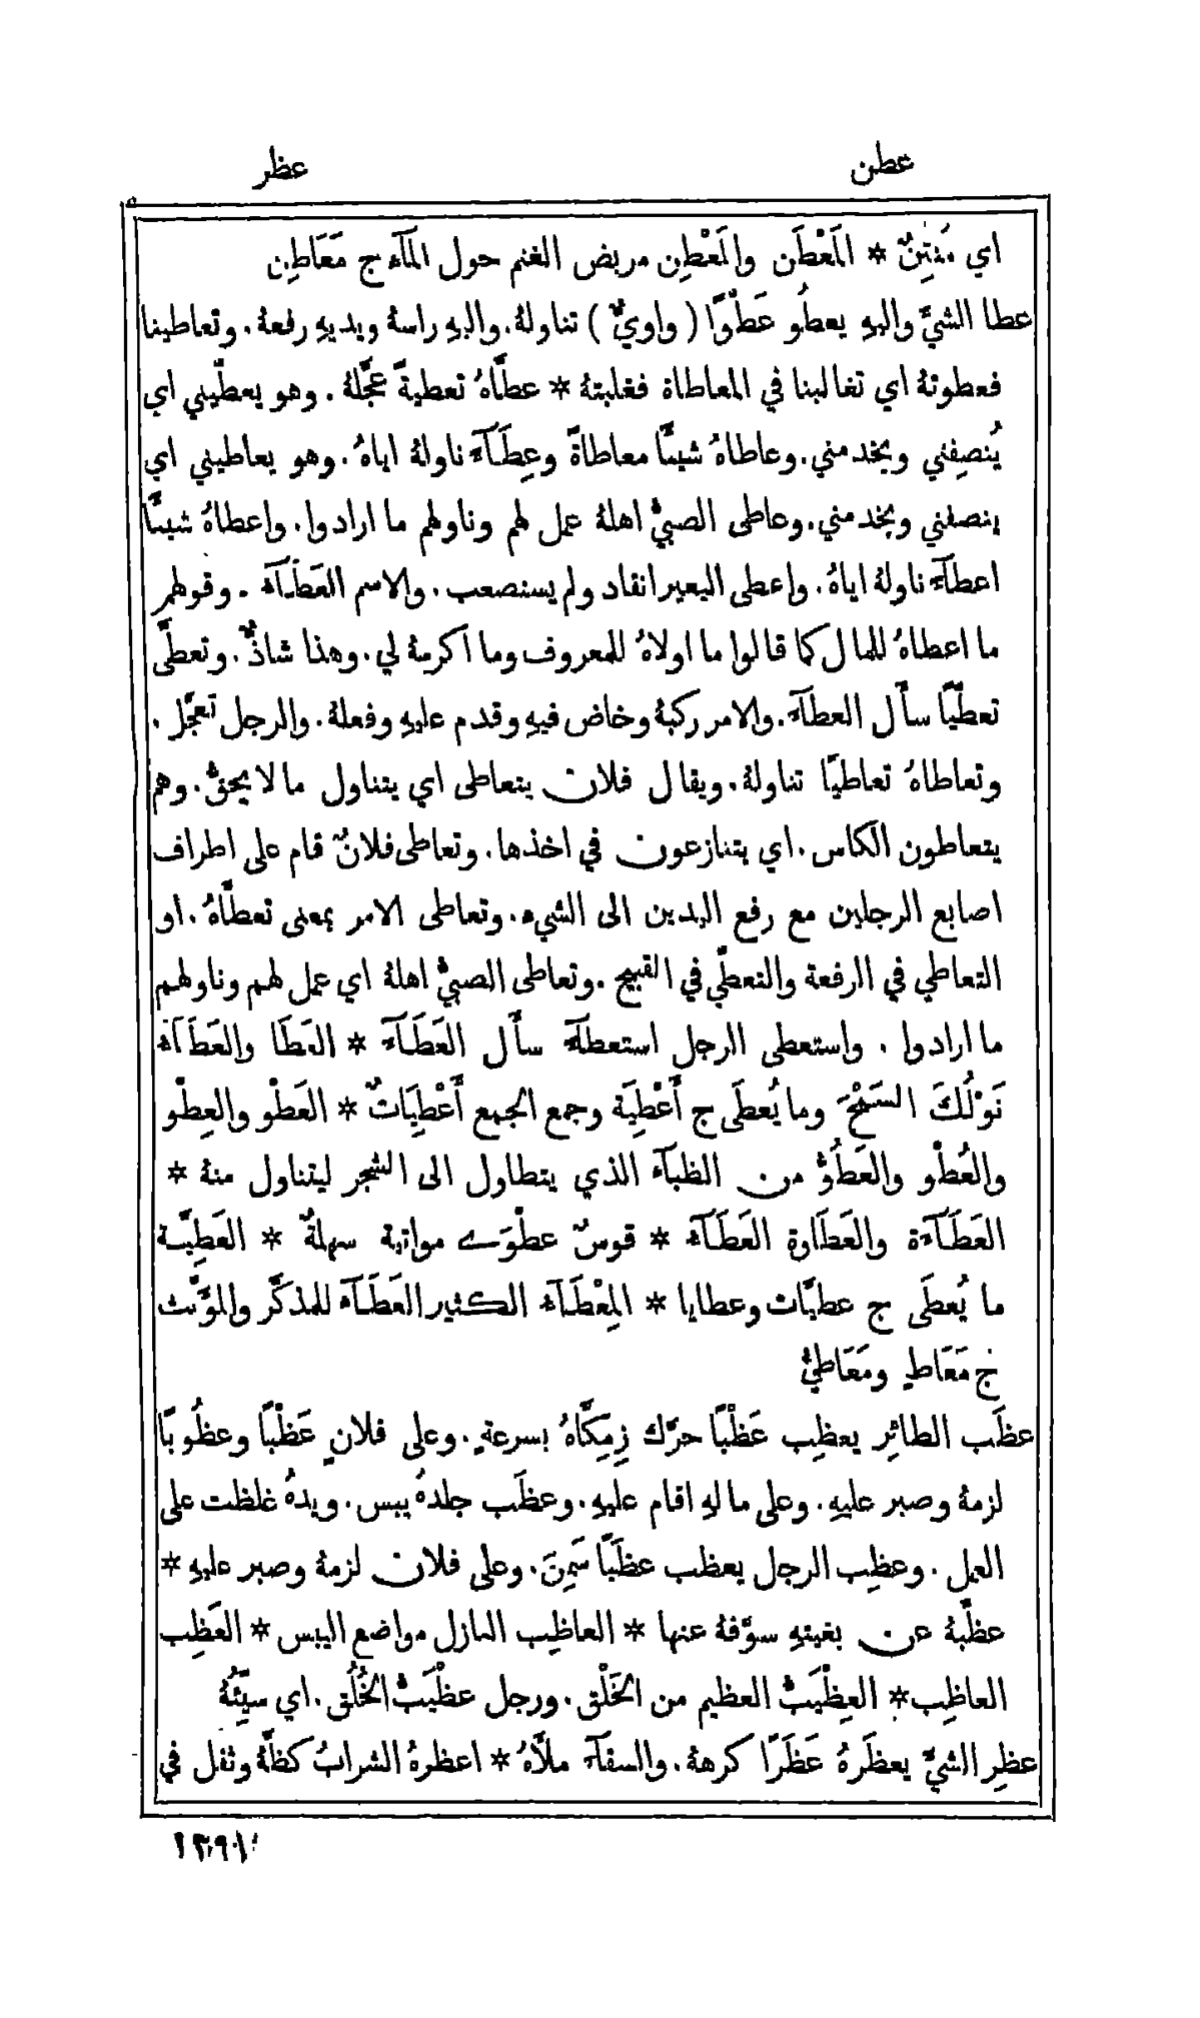 عطن
عظر
اي مُنتِنٌ * المَعْطَن والمَعْطِن مربض الغنم حول المآء ج مَعَاطِن
عطا الشيَّ واليهِ يعطُو عَطْوًا ( واويٌّ ) تناولهُ. واليهِ راسهُ ويديهِ رفعهُ. وتعاطينا
فعطوتهُ اي تغالبنا في المعاطاة فغلبتهُ * عطَّاهُ تعطيةً عجَّلهُ. وهو يعطّيني اي
يُنصِفني ويخدمني. وعاطاهُ شيئًا معاطاةً وعِطَآءً ناولهُ اياهُ. وهو يعاطيني اي
ينصفني ويخدمني. وعاطى الصبيُّ اهلهُ عمل لهم وناولهم ما ارادوا. واعطاهُ شيئًا
اعطآءً ناولهُ اياهُ. واعطى البعير انقاد ولم يستصعب. والاسم العَطَآء. وقولهم
ما اعطاهُ للمال كما قالوا ما اولاهُ للمعروف وما اكرمهُ لي. وهذا شاذٌّ. وتعطَّى
تعطِّيًا سأَل العطآء. والامر ركبهُ وخاض فيهِ وقدم عليهِ وفعلهُ. والرجل تعجَّل.
وتعاطاهُ تعاطيًا تناولهُ. ويقال فلان يتعاطى اي يتناول ما لا يحقُّ. وهم
يتعاطون الكاس. اي يتنازعون في اخذها. وتعاطى فلانٌ قام على اطراف
اصابع الرجلين مع رفع اليدين الى الشيء. وتعاطى الامر بمعنى تعطَّاهُ. او
التعاطي في الرفعة والتعطّي في القبيح. وتعاطى الصبيُّ اهلهُ اي عمل لهم وناولهم
ما ارادوا. واستعطى الرجل استعطآءً سأَل العَطَآء * العَطَا والعَطَآء
نَوْلُكَ السَّمْحَ وما يُعطَى ج أَعْطِيَة وجمع الجمع أَعْطِيَاتٌ * العَطْو والعِطْو
والعُطْو والعَطُوُّ من الظبآء الذي يتطاول الى الشجر ليتناول منهُ *
العَطَآءَة والعَطَاوة العَطَآء * قوسٌ عطْوَى مواتية سهلةٌ * العَطِيَّة
ما يُعطَى ج عطيَّات وعطايا * المِعْطَآء الكثير العَطَآء للمذكَّر والمؤَنَّث
ج مَعَاطٍ ومَعَاطيُّ
عظَب الطائِر يعظِب عَظْبًا حرَّك زِمِكَّاهُ بسرعةٍ. وعلى فلانٍ عَظْبًا وعظُوبًا
لزمهُ وصبر عليهِ. وعلى مالهِ اقام عليهِ. وعظَب جلدهُ يبس. ويدهُ غلظت على
العمل. وعظِب الرجل يعظب عظَبًا سَمِنَ. وعلى فلان لزمهُ وصبر عليهِ *
عظَّبهُ عن بغيتهِ سوَّفهُ عنها * العاظِب النازل مواضع اليبس * العَظِب
العاظِب * العِظْيَبُّ العظيم من الخَلْق. ورجل عظْيَبُّ الخُلُق. اي سيِّئُهُ
عظِر الشيَّ يعظَرهُ عَظَرًا كرههُ. والسقآء ملأَهُ * اعظرهُ الشرابُ كظَّهُ وثقل في